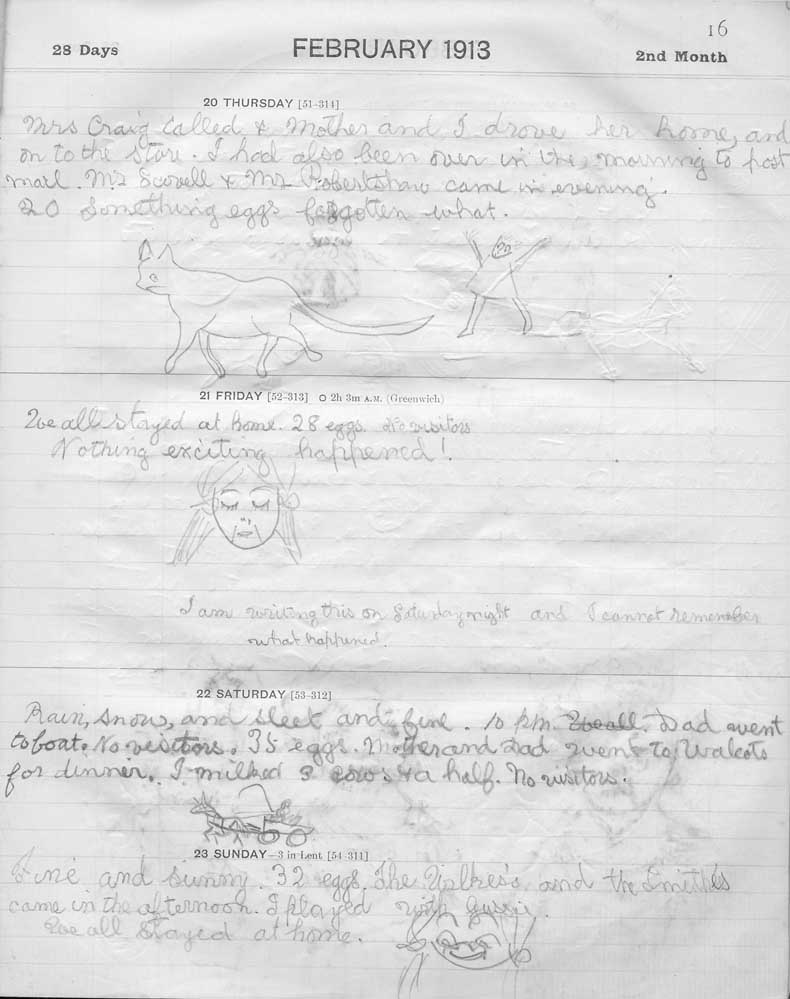 16
28 Days
FEBRUARY 1913
2nd Month
20 THURSDAY [51-314]
Mrs Craig called & Mother and I drove her home, and
on to the store. I had also been over in the morning to post
mail. Mr Scovell & Mr Robertshaw came in evening.
20 something eggs forgotten what.
21 FRIDAY [52-313] O 2h 3m A.M. (Greenwich)
We all stayed at home. 28 eggs. No visitors
Nothing exciting happened!
I am writing this on Saturday night and I cannot remember
what happened.
22 SATURDAY [53-312]
Rain, snow, and sleet and fine. 10 pm. We all. Dad went
to boat. No visitors. 35 eggs. Mother and Dad went to Walcots
for dinner. I milked 3 cows & a half. No visitors.
23 SUNDAY—3 in Lent [54-311]
Fine and sunny. 32 eggs. The and the Smiths
came in the afternoon. I played with Gussie.
We all stayed at home.